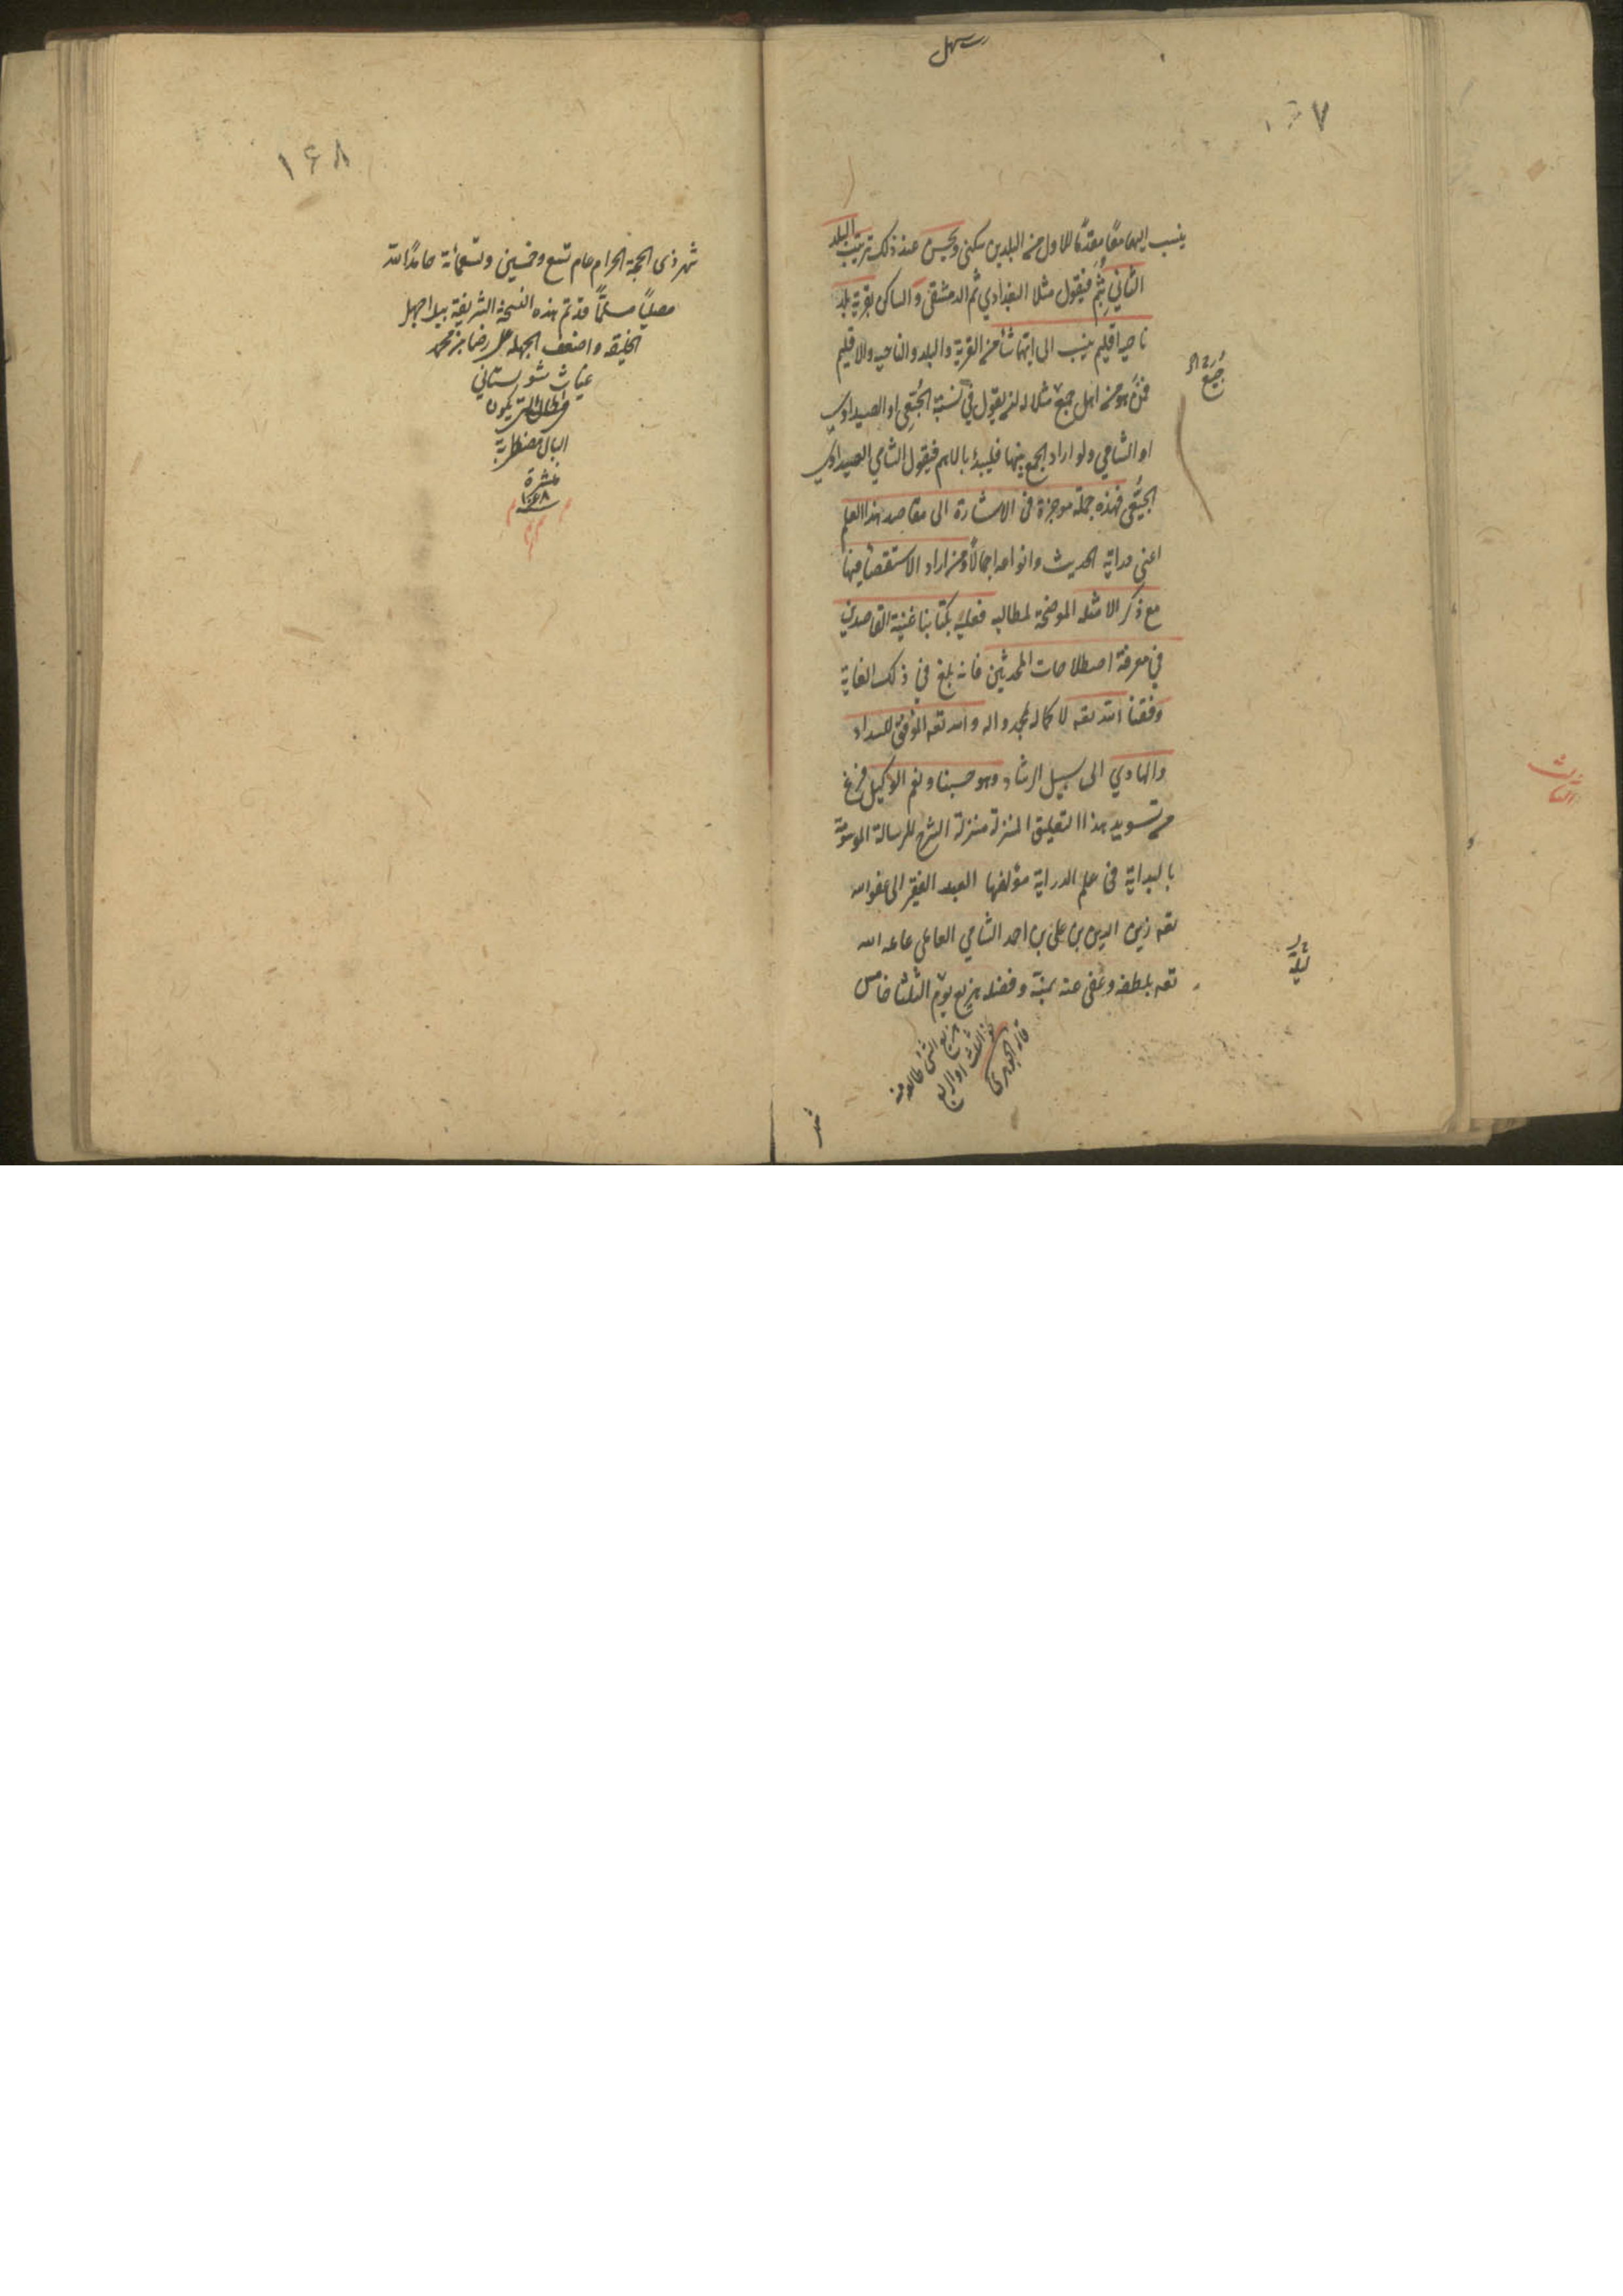 ١٦٧
ينسب اليهما معًا مقدّمًا للاول من البلدين سكنى ويحسن عند ذلك ترتيب البلد
الثاني بثم فيقول مثلا البغدادي ثم الدمشقي والساكن بقرية بلد
ناحية اقليم ينسب الى ايّها شاء من القرية والبلد والناحيه والاقليم
فمن هو من اهل جبع مثلا له ان يقول في نسبته الجُبَعي او الصيداوي
او الشامي ولو اراد الجمع بينها فليبدء بالاعم فيقول الشامي الصيداوي
الجُبَعي فهذه جملة موجزة في الاشارة الى مقاصد هذا العلم
اعني دراية الحديث وانواعه اجمالا ومن اراد الاستقصاء فيها
مع ذكر الامثلة الموضحة لمطالبه فعليه بكتابنا غنية القاصدين
في معرفة اصطلاحات المحدثين فانه بلغ في ذلك الغاية
وفقنا الله تعه لاكماله بمحمد واله والله تعه الموفق للسداد
والهادي الى سبيل الرشاد وهو حسبنا ونعم الوكيل فرغ
من تسويد هذا التعليق المنزلة منزلة الشرح للرسالة الموسومة
بالبداية في علم الدراية مؤلفها العبد الفقير الى عفو الله
تعه زين الدين بن علي بن احمد الشامي العاملي عامله الله
تعه بلطفه وعفى عنه بمنّه وفضله هزيع يوم الثلثا خامس
قاله الجوهري
شهر
١٦٨
شهر ذى الحجة الحرام عام تسع وخمسين وتسعمائة حامدًا لله
مصليًا مسلمًا قد تم هذه النسخة الشريفة بيد اجهل
الخليقة واضعف الجهلة علي رضا بن محمد
غياث شوستاني
البال مضطربة